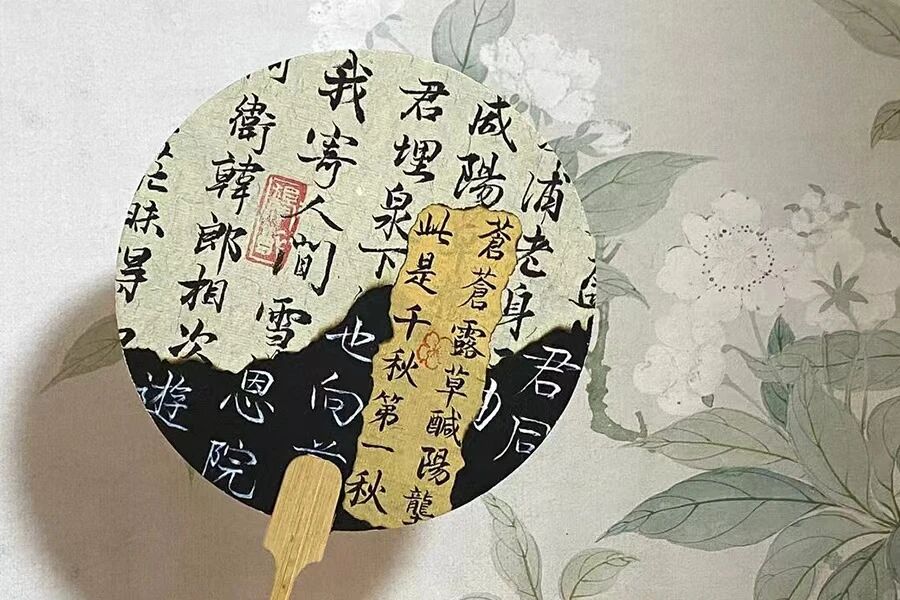 君同
浦老身
咸陽
蒼蒼露草醎陽壟
此是千秋第一秋
君埋泉下
也向
我寄人間雪
恩院
衛韓郎相次
遊
茫昧得